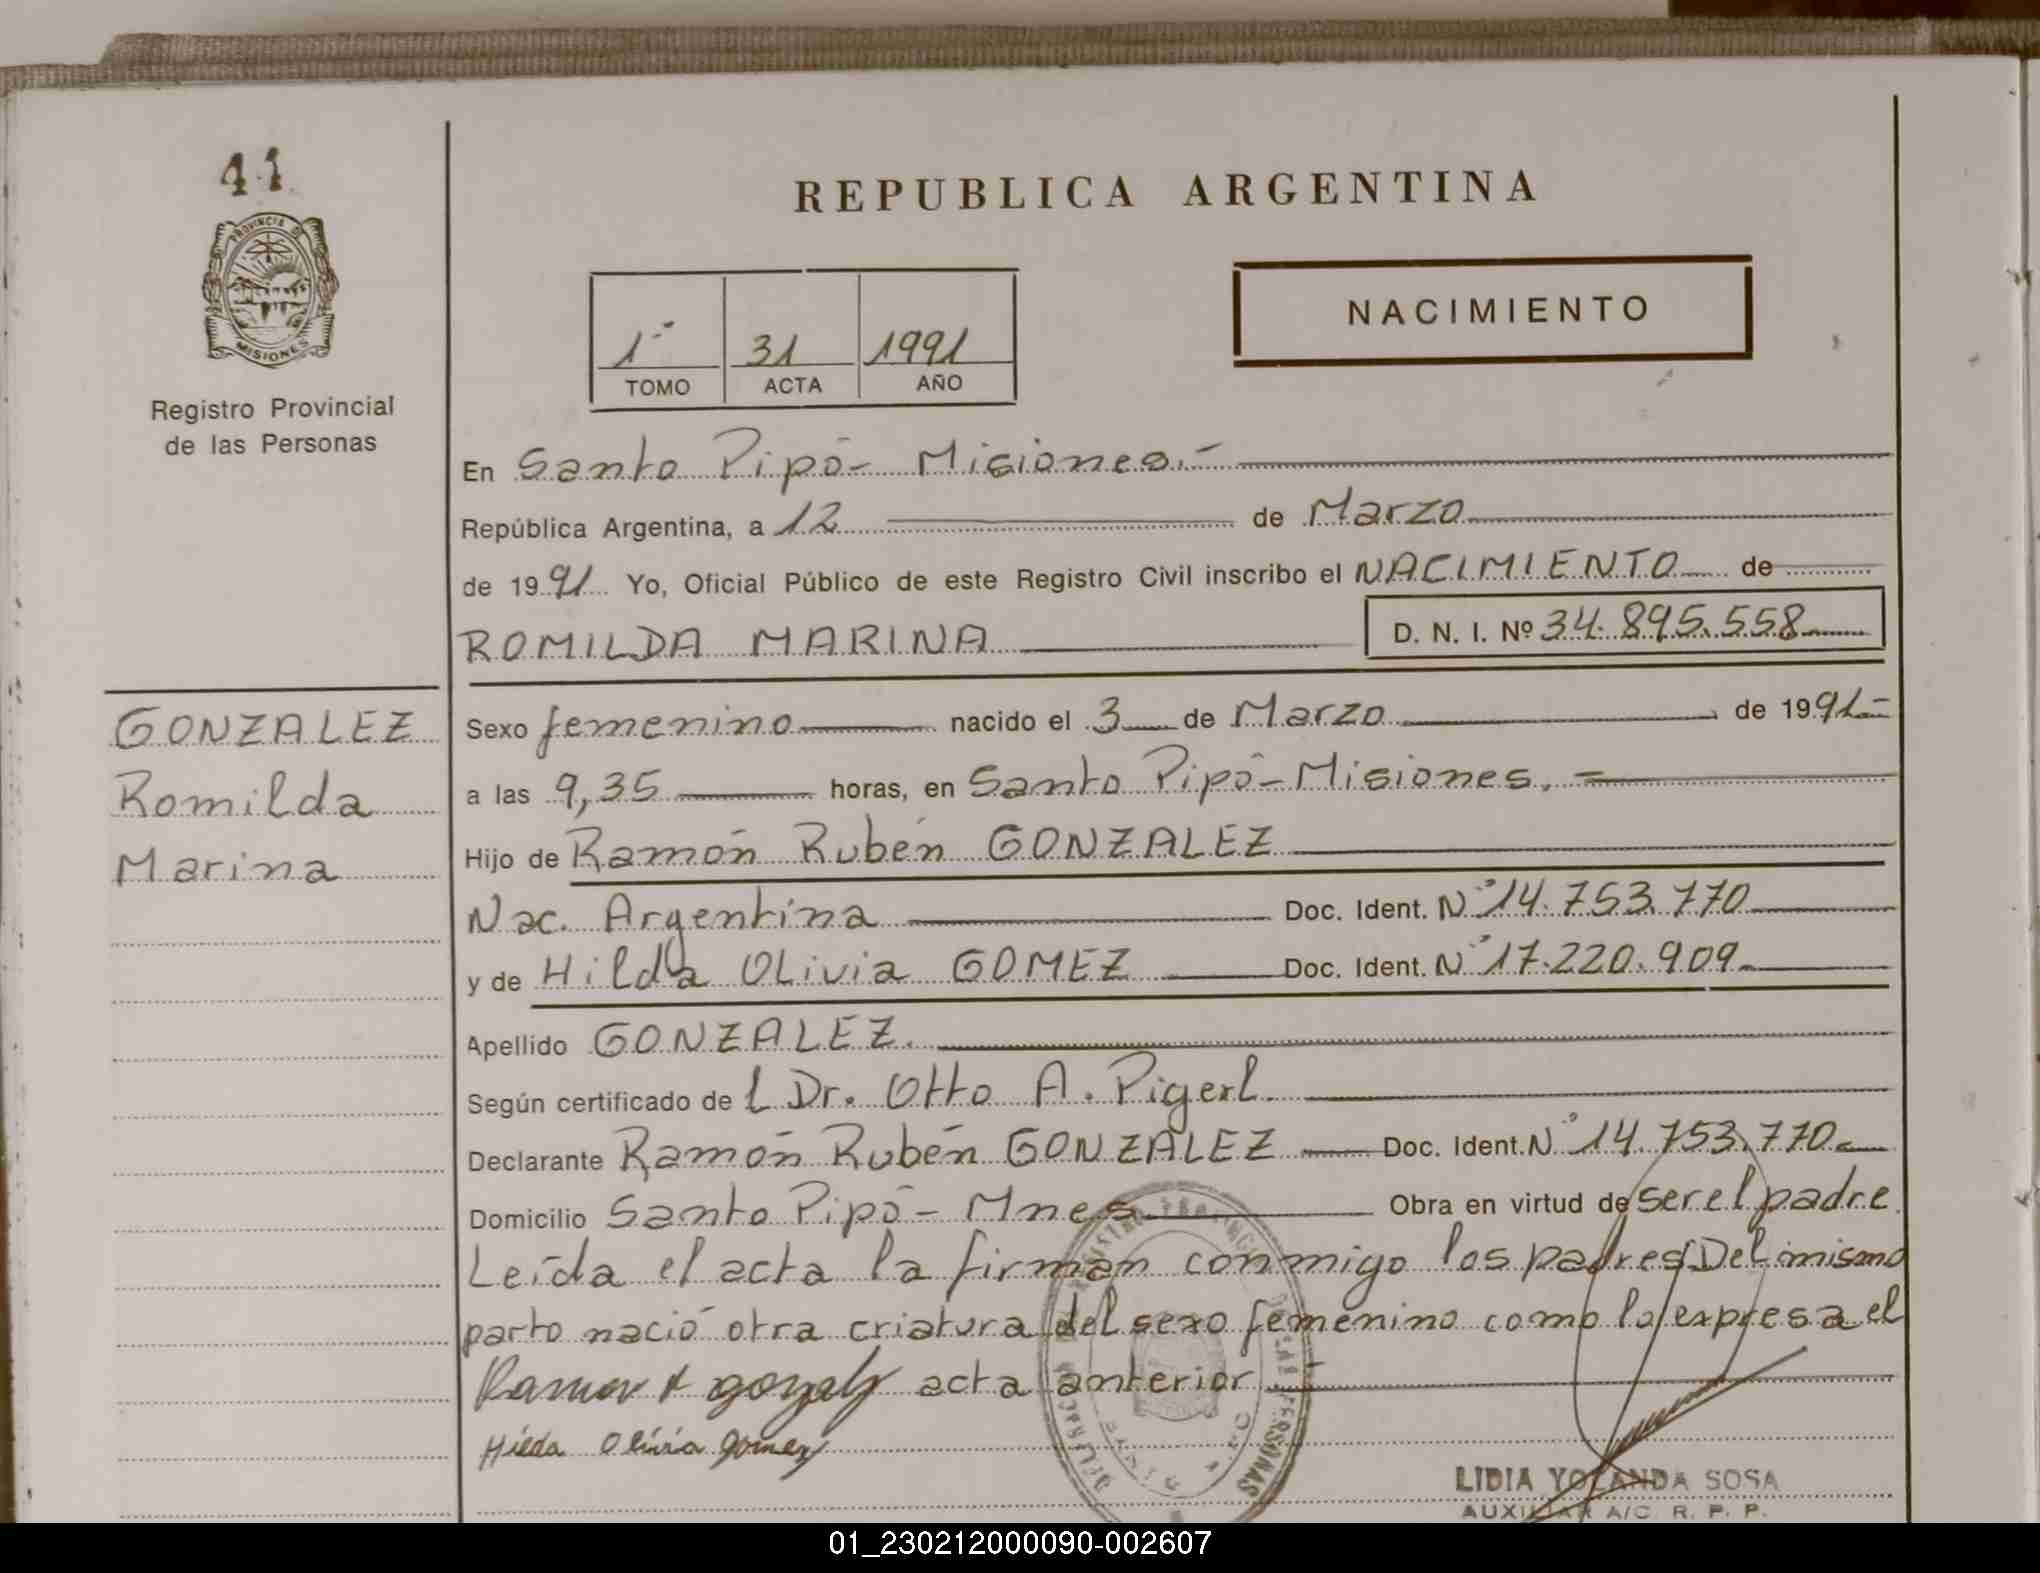 41
PROVINCIA DE
MISIONES
Registro Provincial
de las Personas
REPUBLICA ARGENTINA
1º 31 1991
TOMO ACTA AÑO
NACIMIENTO
En Santo Pipó - Misiones.-
República Argentina, a 12 de Marzo
de 1991 Yo, Oficial Público de este Registro Civil inscribo el NACIMIENTO de
ROMILDA MARINA D. N. I. Nº 34.895.558
GONZALEZ
Romilda
Marina
Sexo femenino nacido el 3 de Marzo de 1991.-
a las 9,35 horas, en Santo Pipó - Misiones. =
Hijo de Ramón Rubén GONZALEZ
Nac. Argentina Doc. Ident. Nº 14.753.770
y de Hilda Olivia GOMEZ Doc. Ident. Nº 17.220.909
Apellido GONZALEZ.
Según certificado de l Dr. Otto A. Pigerl.
Declarante Ramón Rubén GONZALEZ Doc. Ident. Nº 14.753.770
Domicilio Santo Pipó - Mnes. Obra en virtud de ser el padre
Leída el acta la firman conmigo los padres/Del mismo
parto nació otra criatura del sexo femenino como lo expresa el
Ramon R gonzalez acta anterior
Hilda Olivia Gomez
LIDIA YOLANDA SOSA
AUXILIAR A/C. R. P. P.
01_230212000090-002607